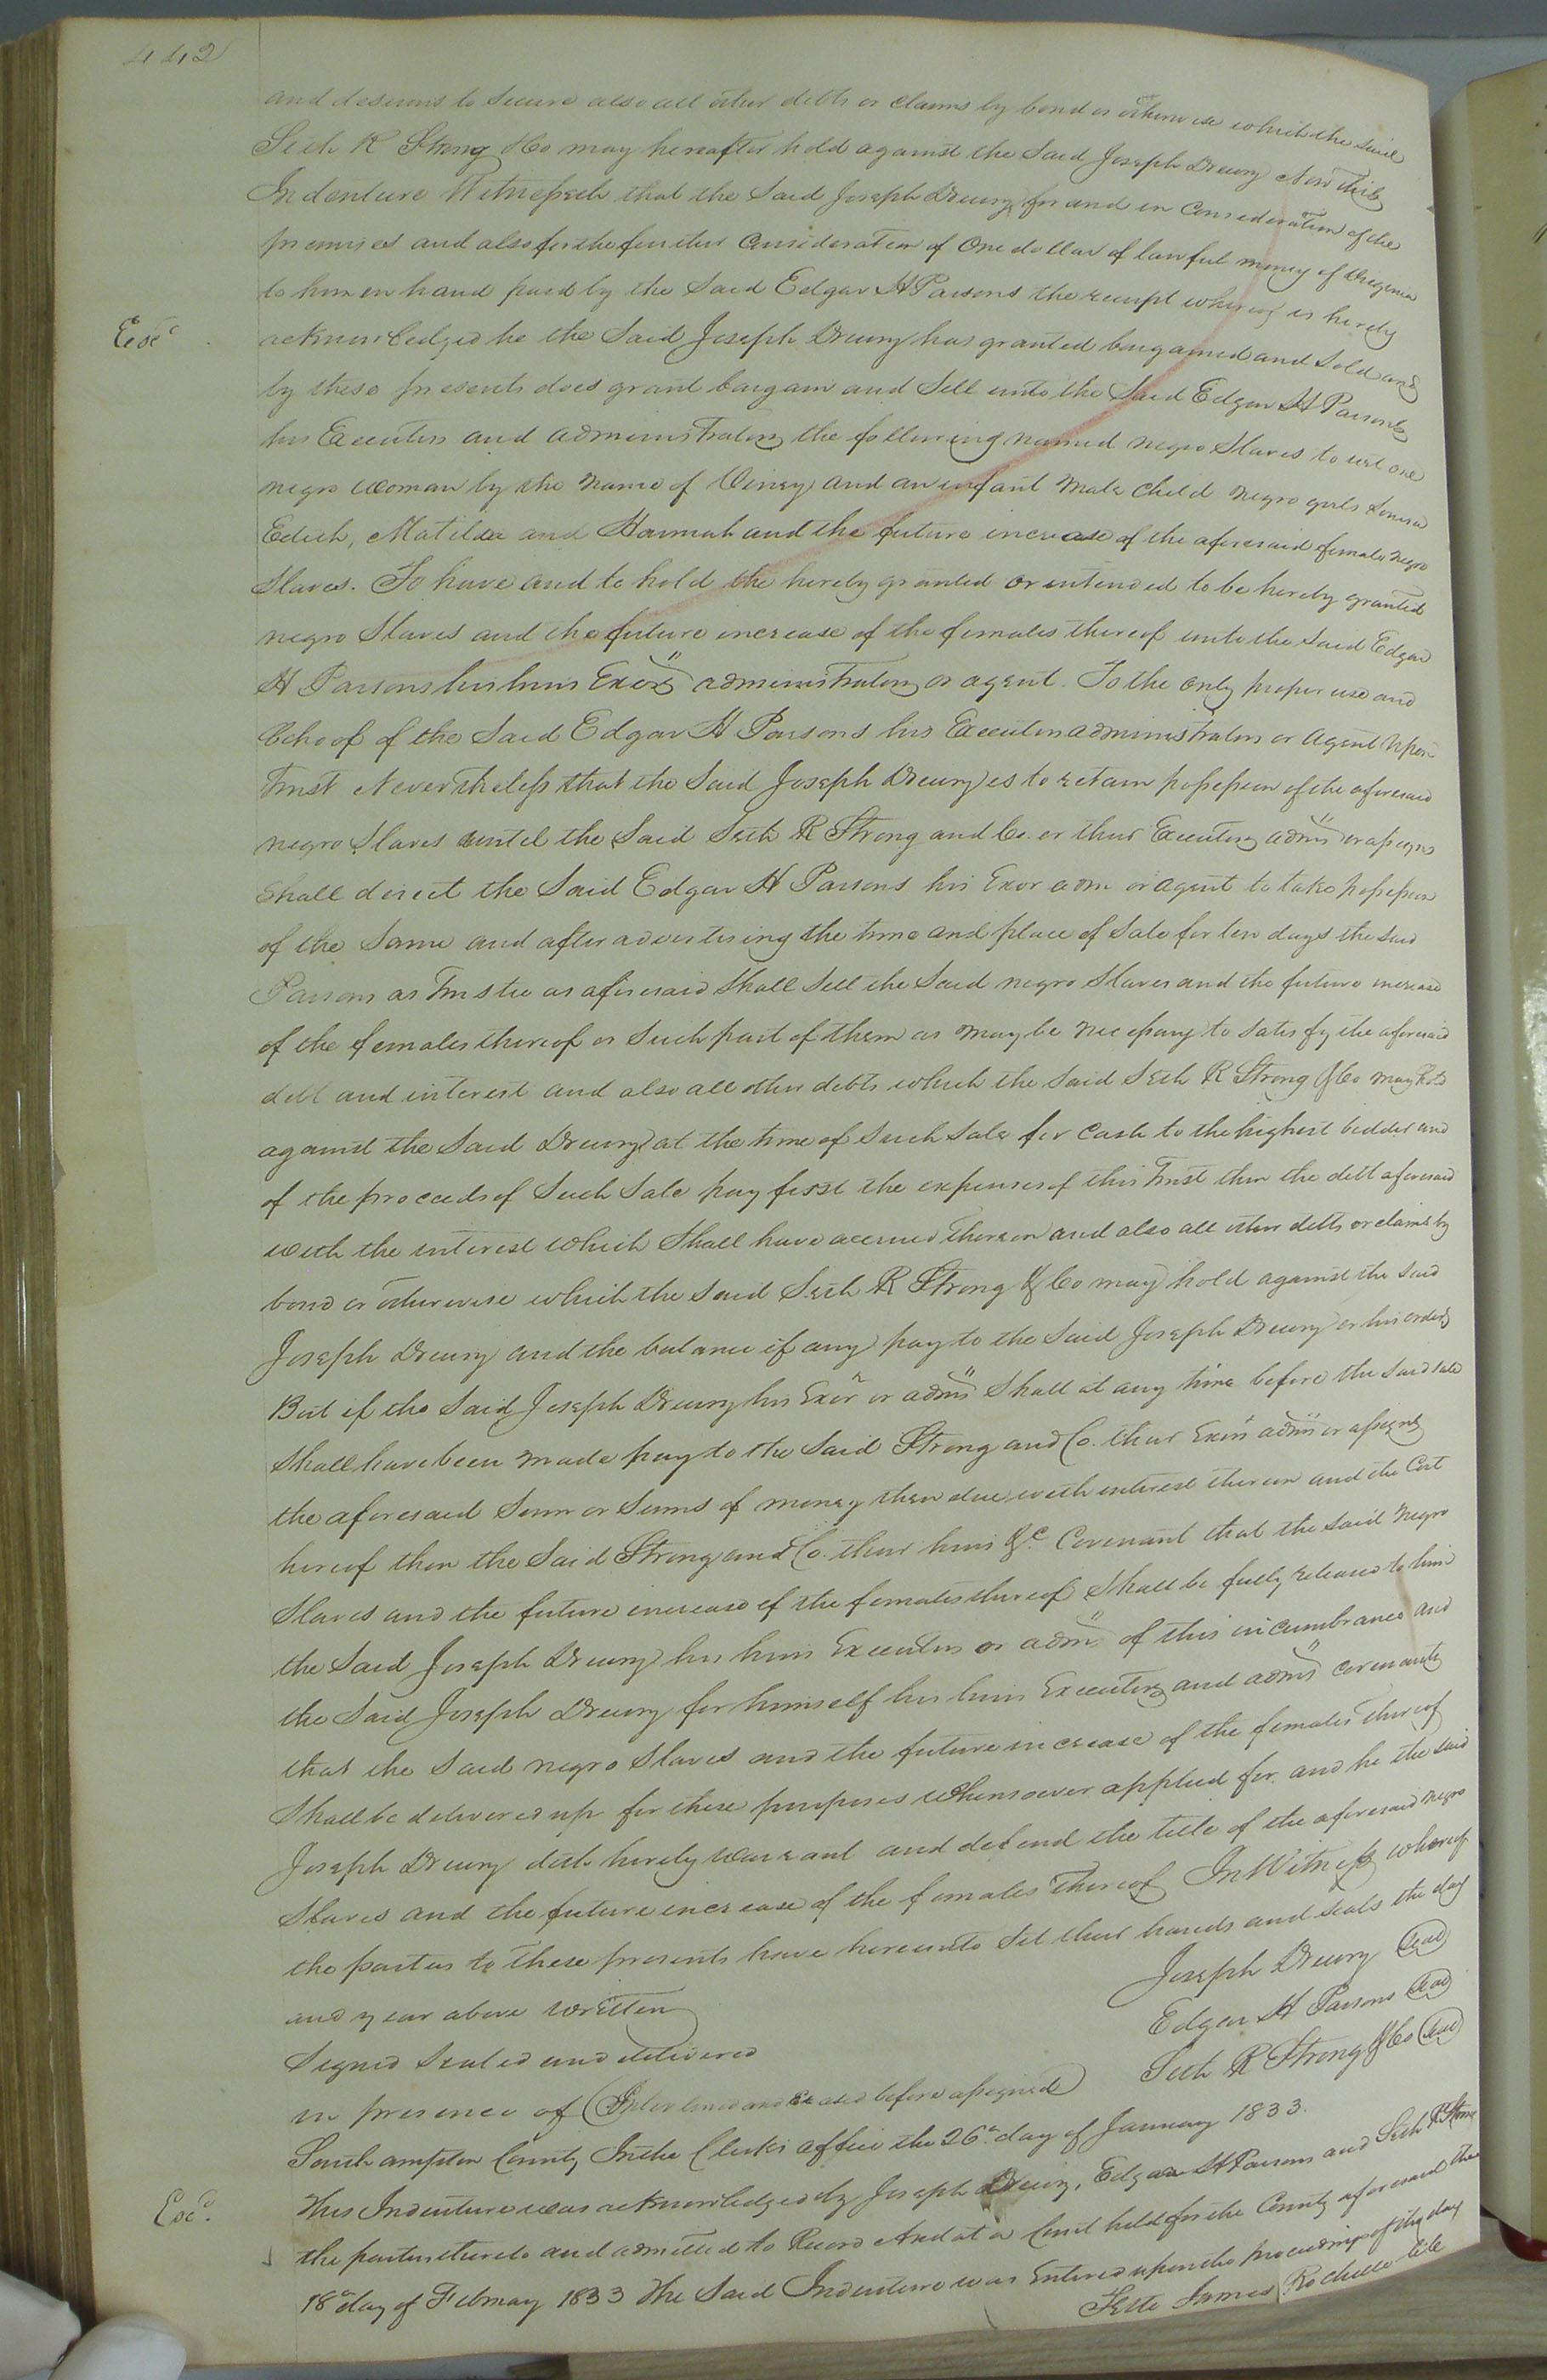 442
and desirous to secure also all other debts or claims by bond or otherwise which the said
Seth R Strong &Co may hereafter hold against the said Joseph Drewry Now this
Indenture Witnesseth that the said Joseph Drewry for and in consideration of the
premises and also for the further consideration of One dollar of lawful money of Virginia
to him in hand paid by the said Edgar H Parsons the receipt whereof is hereby
acknowledged he the said Joseph Drewry has granted bargained and sold and
by these presents does grant bargain and sell unto the said Edgar H Parsons
his Executors and administrators the following named negro slaves to wit one
negro woman by the name of Viney and an infant male child negro girls Louisa
Edith, Matilda and Hannah and the future increase of the aforesaid female negro
slaves. To have and to hold the hereby granted or intended to be hereby granted
negro slaves and the future increase of the females thereof unto the said Edgar
H Parsons his heirs Exors administrators or agent. To the only proper use and
behoof of the said Edgar H Parsons his Executors administrators or agent Upon
Trust Nevertheless that the said Joseph Drewry is to retain possession of the aforesaid
negro slaves until the said Seth R Strong and Co. or their Executors adms or assigns
shall direct the said Edgar H Parsons his Exor adm or agent to take possession
of the same and after advertising the time and place of sale for ten days the said
Parsons as Trustee as aforesaid shall sell the said negro slaves and the future increase
of the females thereof or such part of them as may be necessary to satisfy the aforesaid
debt and interest and also all other debts which the said Seth R Strong &Co may hold
against the said Drewry at the time of such sale for cash to the highest bidder and
of the proceeds of such sale pay first the expenses of this Trust then the debt aforesaid
with the interest which shall have accrued thereon and also all other debts or claims by
bond or otherwise which the said Seth R Strong &Co may hold against the said
Joseph Drewry and the balance if any pay to the said Joseph Drewry or his orders
But if the said Joseph Drewry his Exor or adms shall at any time before the said sale
shall have been made pay to the said Strong and Co. their Exors adms or assigns
the aforesaid sum or sums of money then due with interest thereon and the Cost
hereof then the said Strong and Co. their heirs &c. Covenant that the said negro
slaves and the future increase of the females thereof shall be fully released to him
the said Joseph Drewry his heirs Executors or adms of this incumbrance and
the said Joseph Drewry for himself his heirs Executors and adms covenants
that the said negro slaves and the future increase of the females thereof
shall be delivered up for these purposes whensoever applied for and he the said
Joseph Drewry doth hereby warrant and defend the title of the aforesaid negro
slaves and the future increase of the females thereof In Witness whereof
the parties to these presents have hereunto set their hands and seals the day
and year above written
Joseph Drewry Seal
Signed Sealed and delivered
Edgar H Parsons Seal
in presence of (Interlined and erased before assigned)
Seth R Strong &Co Seal
Southampton County In the Clerks office the 26th day of January 1833.
This Indenture was acknowledged by Joseph Drewry, Edgar H Parsons and Seth R Strong
the parties thereto and admitted to Record And at a Court held for the County aforesaid the
18th day of February 1833 The said Indenture was Entered upon the proceedings of the day
Teste James Rochelle